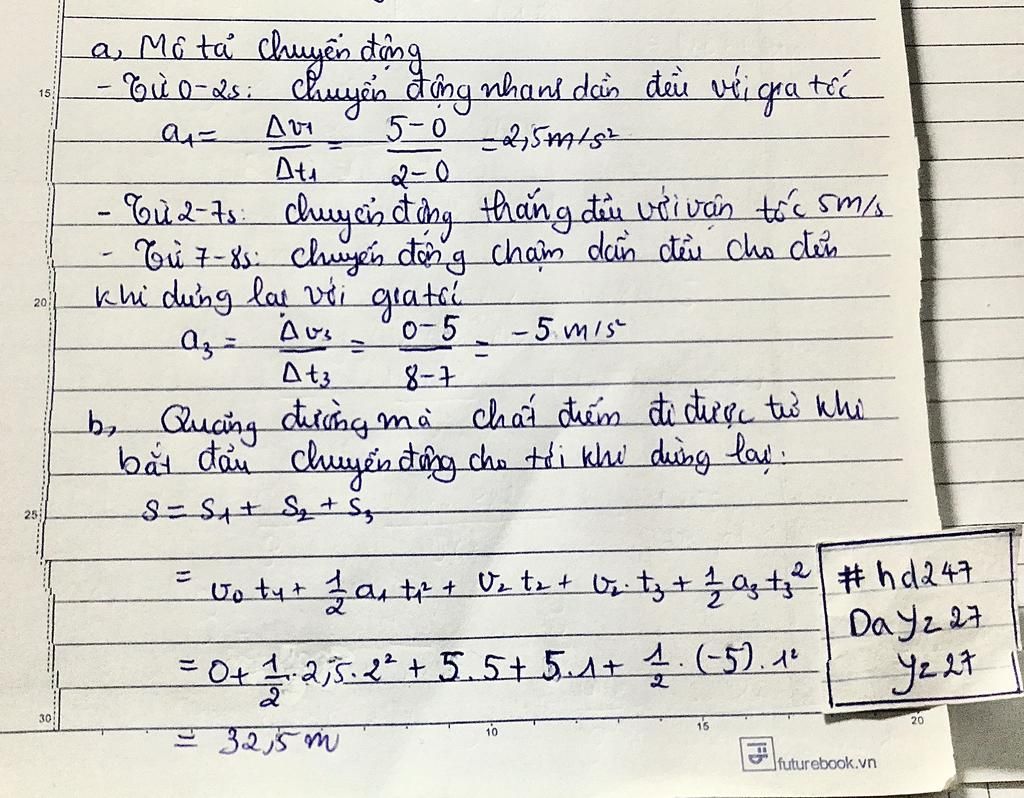 a, Mô tả chuyển động
- Từ 0-2s: chuyển động nhanh dần đều với gia tốc
a₁ = Δv₁/Δt₁ = 5-0/2-0 = 2,5m/s²
- Từ 2-7s: chuyển động thẳng đều với vận tốc 5m/s
- Từ 7-8s: chuyển động chậm dần đều cho đến
khi dừng lại với gia tốc
a₃ = Δv₃/Δt₃ = 0-5/8-7 = -5 m/s²
b, Quãng đường mà chất điểm đi được từ khi
bắt đầu chuyển động cho tới khi dừng lại:
s = s₁ + s₂ + s₃
= v₀t₁ + 1/2 a₁t₁² + v₂t₂ + v₂.t₃ + 1/2 a₃t₃²
= 0 + 1/2 . 2,5.2² + 5.5 + 5.1 + 1/2 . (-5).1²
= 32,5 m
#hd247
Dayz27
yz27
15
20
25
30
10
15
20
futurebook.vn